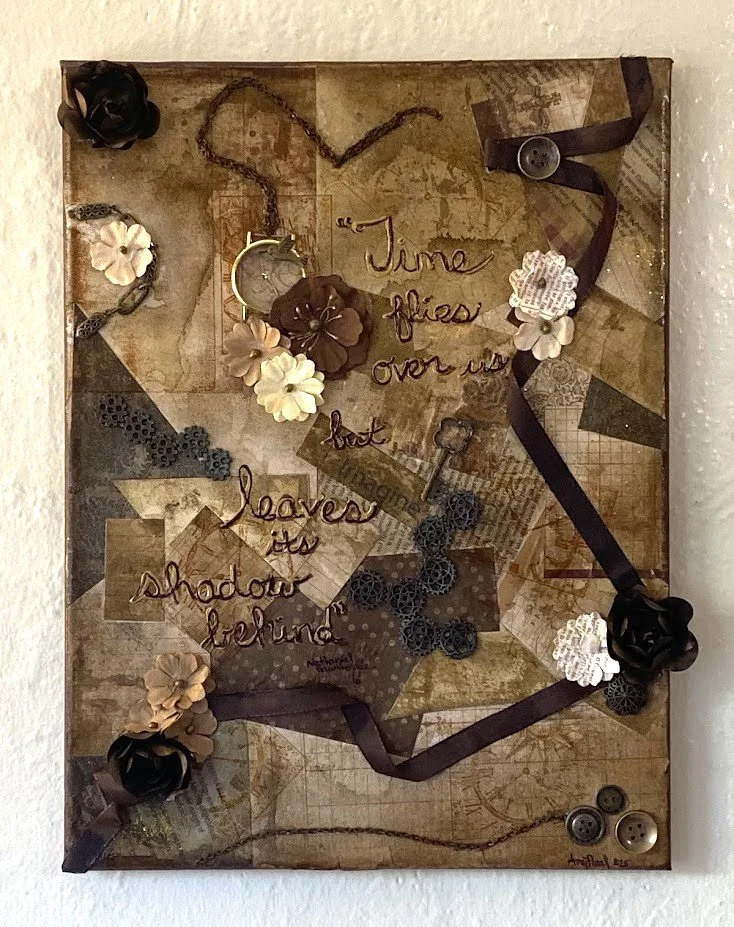 "Time
flies
over us
but
imagine
leaves
its
shadow
behind"
Nathaniel
Hawthorne